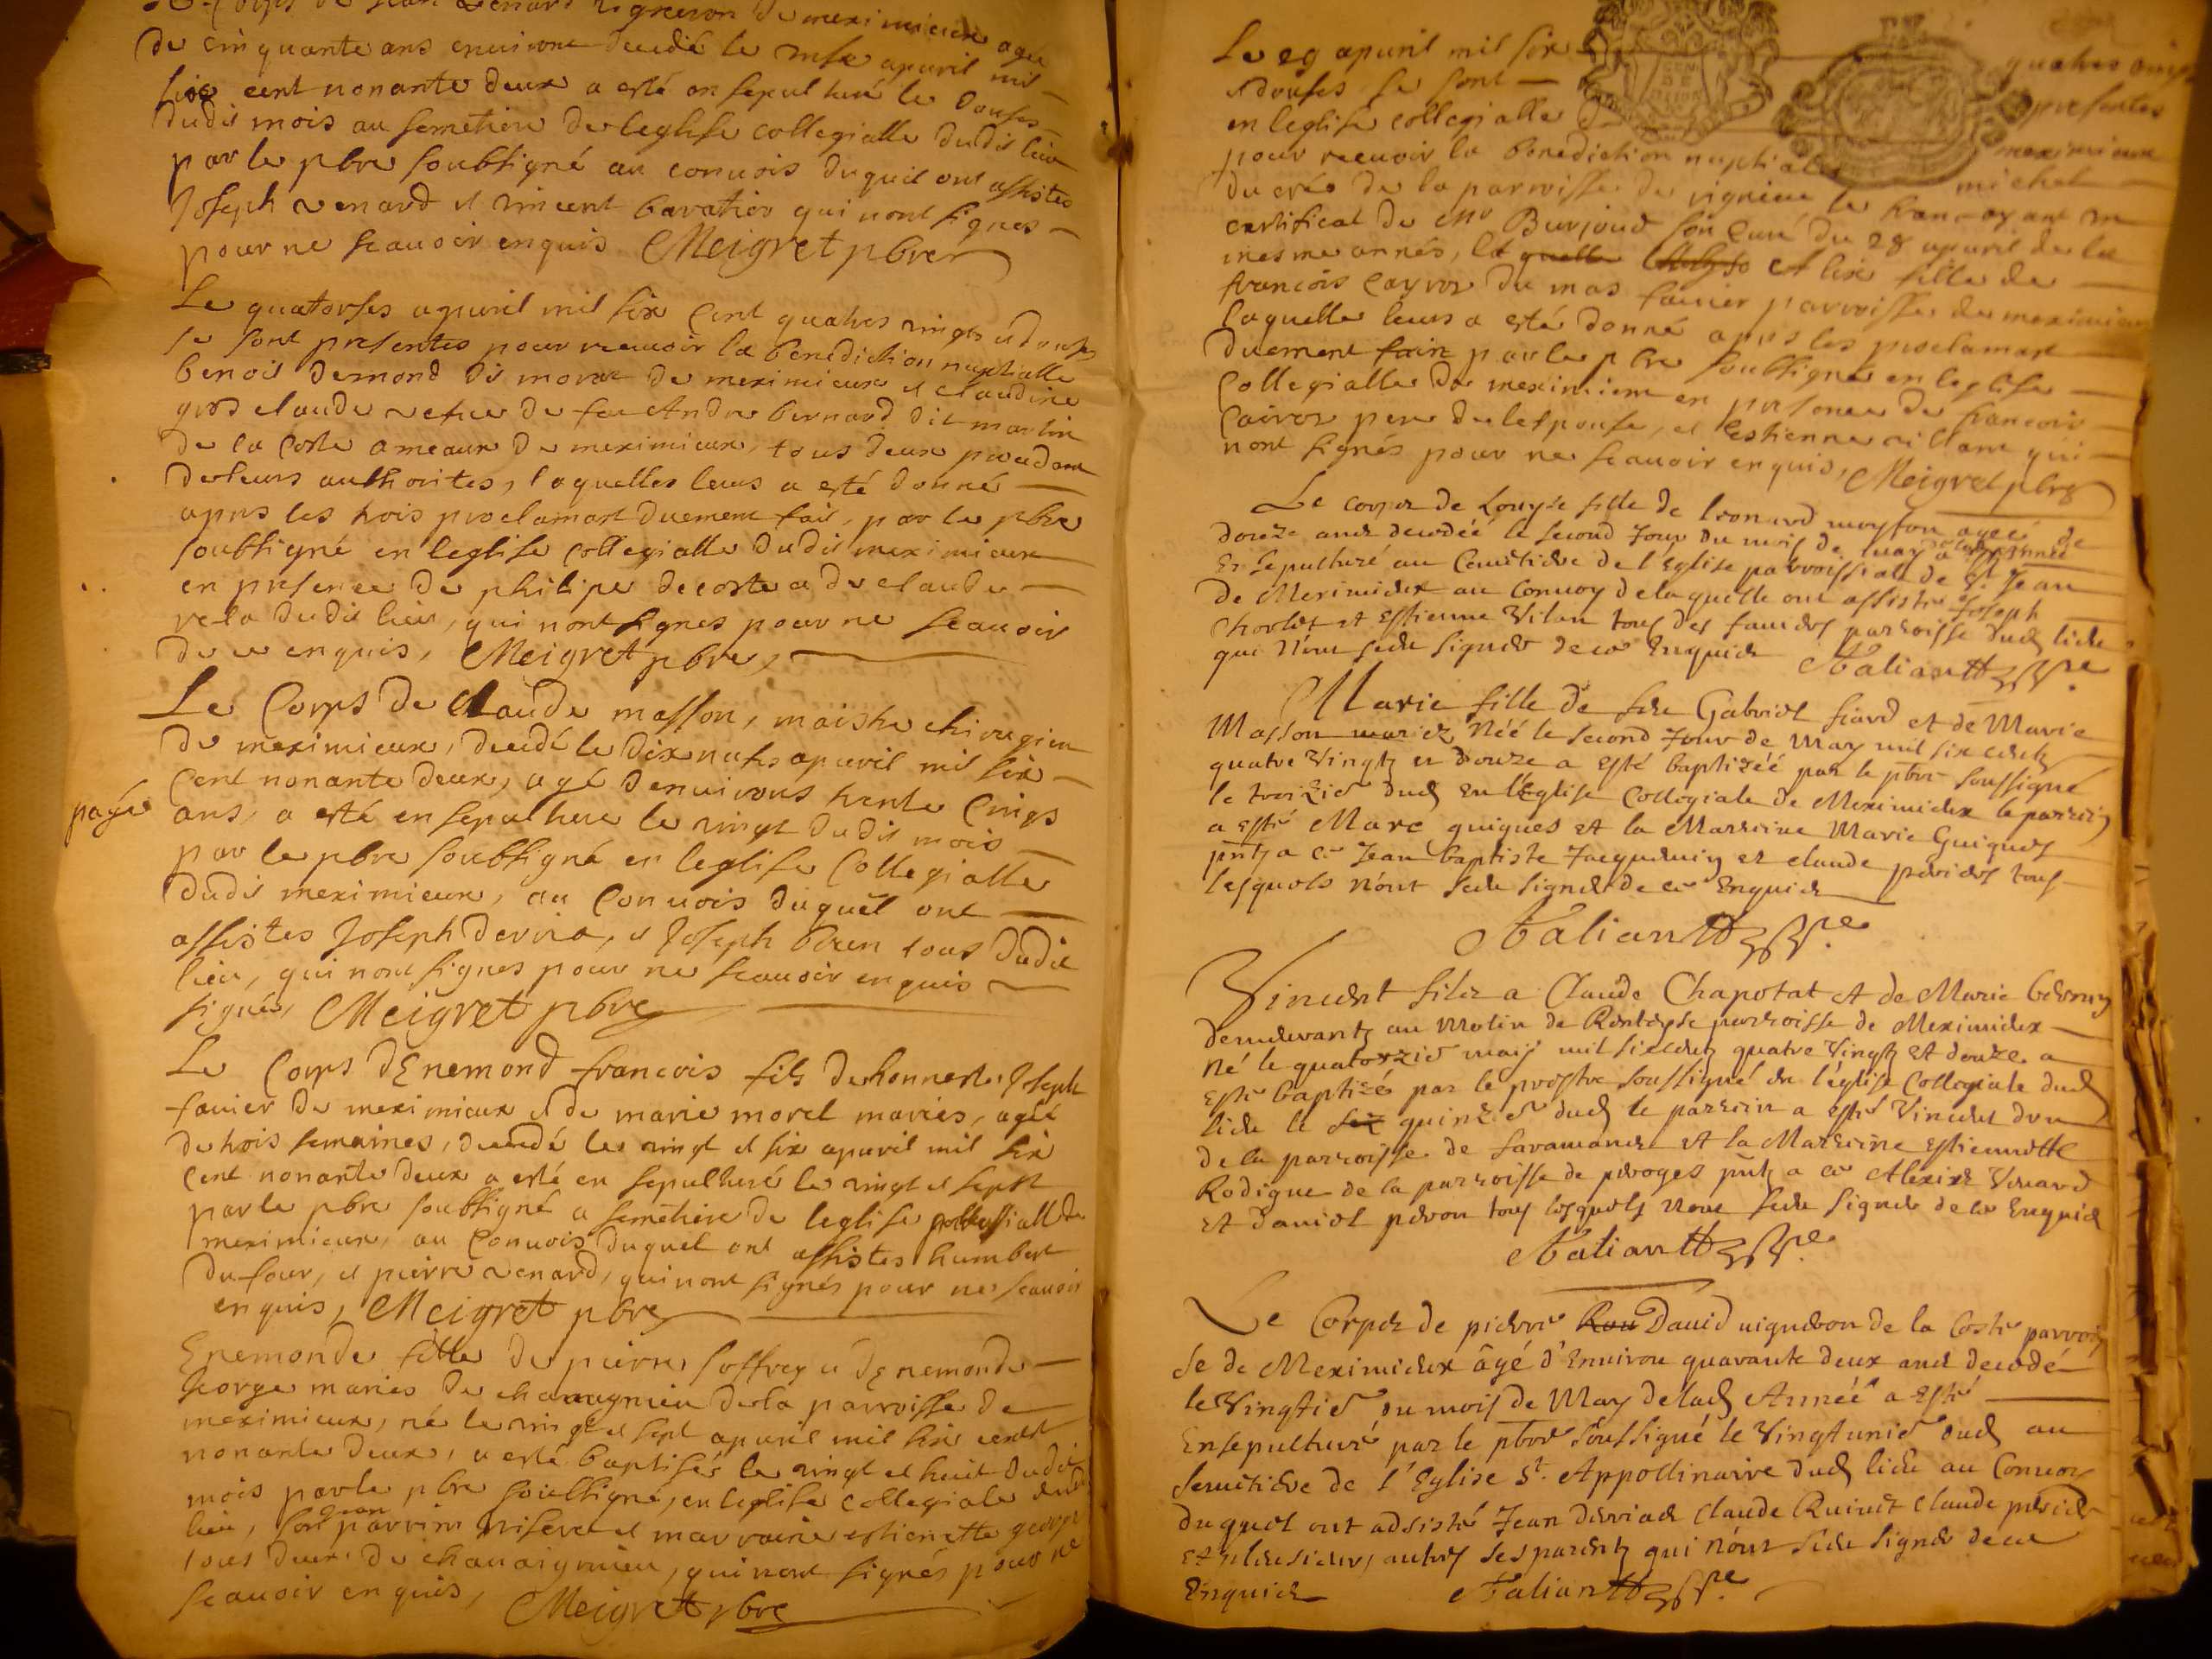 Le Corps de Jean venard vigneron de meximieux agée
de cinquante ans environt decedé le onse apvril mil
six cent nonante deux a esté ensepulturé le douses
dudis mois au semetiere de leglise collegialle dudis lieu
par le pbre soubsigné au convois duquel ont assistes
Joseph venard et vincent baratier qui nont signes
pour ne scauoir enquis Meigret pbre
Le quatorses apvril mil six cent quatres vingts et douses
se sont presentes pour receuoir la benediction nuptialle
benois demond dis morat de meximieux et claudine
gros claude vefue de feu Andre bernard dit martin
de la coste ameaux de meximieux, tous deux procedant
de leurs authorites, laquelles leurs a esté donné
apres les trois proclamant duement fait, par le pbre
soubsigné en leglise collegialle dudis meximieux
en presence de philipe decoste a de claude
vela dudis lieu, qui nont signes pour ne scauoir
de ce enquis, Meigret pbre,
Le Corps de Claude masson, maistre chirugien
de meximieux, decedé le dix neufs apvril mil six
cent nonante deux, agé denuirons trente cinqs
payé
ans, a esté ensepulture le vingt dudis mois
par le pbre soubsigné en leglise Collegialle
dudis meximieux, au convois duquel ont
assistes Joseph dervia, et Joseph bren tous dudit
lieu, qui nont signes pour ne scauoir enquis
signés, Meigret pbre
Le Corps dEnemond francois fils de honneste Joseph
fauier de meximieux et de marie morel mariés, agée
de trois semaines, decedé les vingt et six apvril mil six
cent nonante deux a esté en sepulturé le vingt et sept
par le pbre soubsigné a semetiere de leglise collegialle de
meximieux, au convois duquel ont assistes humbert
dufour, et pierre venard, qui nont signés pour ne scauoir
enquis, Meigret pbre
Enemonde fille de pierre soffrey et dEnemonde
george mariés de chavagnieu de la parroisse de
meximieux, né le vingt et sept apvril mil six cent
nonante deux, a esté baptisés le vingt et huit dudit
mois par le pbre soubsigné, en leglise collegiale dudit
lieu, son parrin et marraine estienette george
tous deux de chavaignieu, qui nont signés pour ne
scauoir enquis, Meigret pbre
Le 29 apvril mil six quatres vings
et douses se sont presentes
en leglise collegialle meximieux
pour receuoir la benediction nuptialle michel
du crés de la parroisse de vignieu le francoy ant un
certificat de Mr Burjoud son Curé du 28 apvril de la
mesme année, et lise fille de
francois cayros du mas fauier parroisse de meximieux
laquelle leurs a esté donné apres les proclamant
duement faire par le pbre soubsigné en leglise
Collegialle de meximieux en presence de francois
cairos pere de lespouse, et estienne vilant qui
nont signés pour ne scauoir enquis, Meigret pbre
Le corps de Louyse fille de Leonard moyson agée de
douze ans decedéé le second Jour du mois de may a esté
Ensepulturé au Cemetiere de l'Eglise parroissiale de St. Jean
de Meximieux au Convoy de laquelle ont assisté Joseph
Charlet et Estienne Vilan tous des fauiers parroisse dud. lieu
qui n'ont sceu signer de ce Enquis Faliantt
Marie fille de feu Gabriel fiard et de Marie
Masson mariez Néé le second Jour de May mil six cents
quatre Vingts et douze a esté baptizéé par le pbre soussigné
le troizie dud. En l'Eglise Collegiale de Meximieux le parrein
a esté Marc guigues et la Marreine Marie Guigues
pnts a ce Jean baptiste Jacquemin et claude perier tous
lesquels n'ont sceu signer de ce Enquis
Faliantt
Vincent fils a Claude Chapotat et de Marie
demeurants au Molin de parroisse de Meximieux
né le quatorzie may mil six cents quatre Vingts et douze a
esté baptizé par le prestre soussigné en l'église Collegiale dud.
lieu le quinzie dud. le parrein a esté Vincent
de la parroisse de faramans et la Marreine Estiennette
Rodigue de la parroisse de peroges pnts a ce Alexis Venard
et daniel peron tous lesquels n'ont sceu signer de ce Enquis
Faliantt
Le Corps de pierre David vigneron de la Coste parrois
se de Meximieux âgé d'Environ quarante deux ans decedé
le Vingtie du mois de May de lad. Année a esté
Ensepulturé par le pbre soussigné le Vingt unie dud. au
semetiere de l'Eglise St. Appollinaire dud. lieu au Convoy
duquel ont adsisté Jean derviad Claude Ruinet Claude perier
et plusieurs autres ses parents qui n'ont sceu signer de ce
Enquis Faliantt